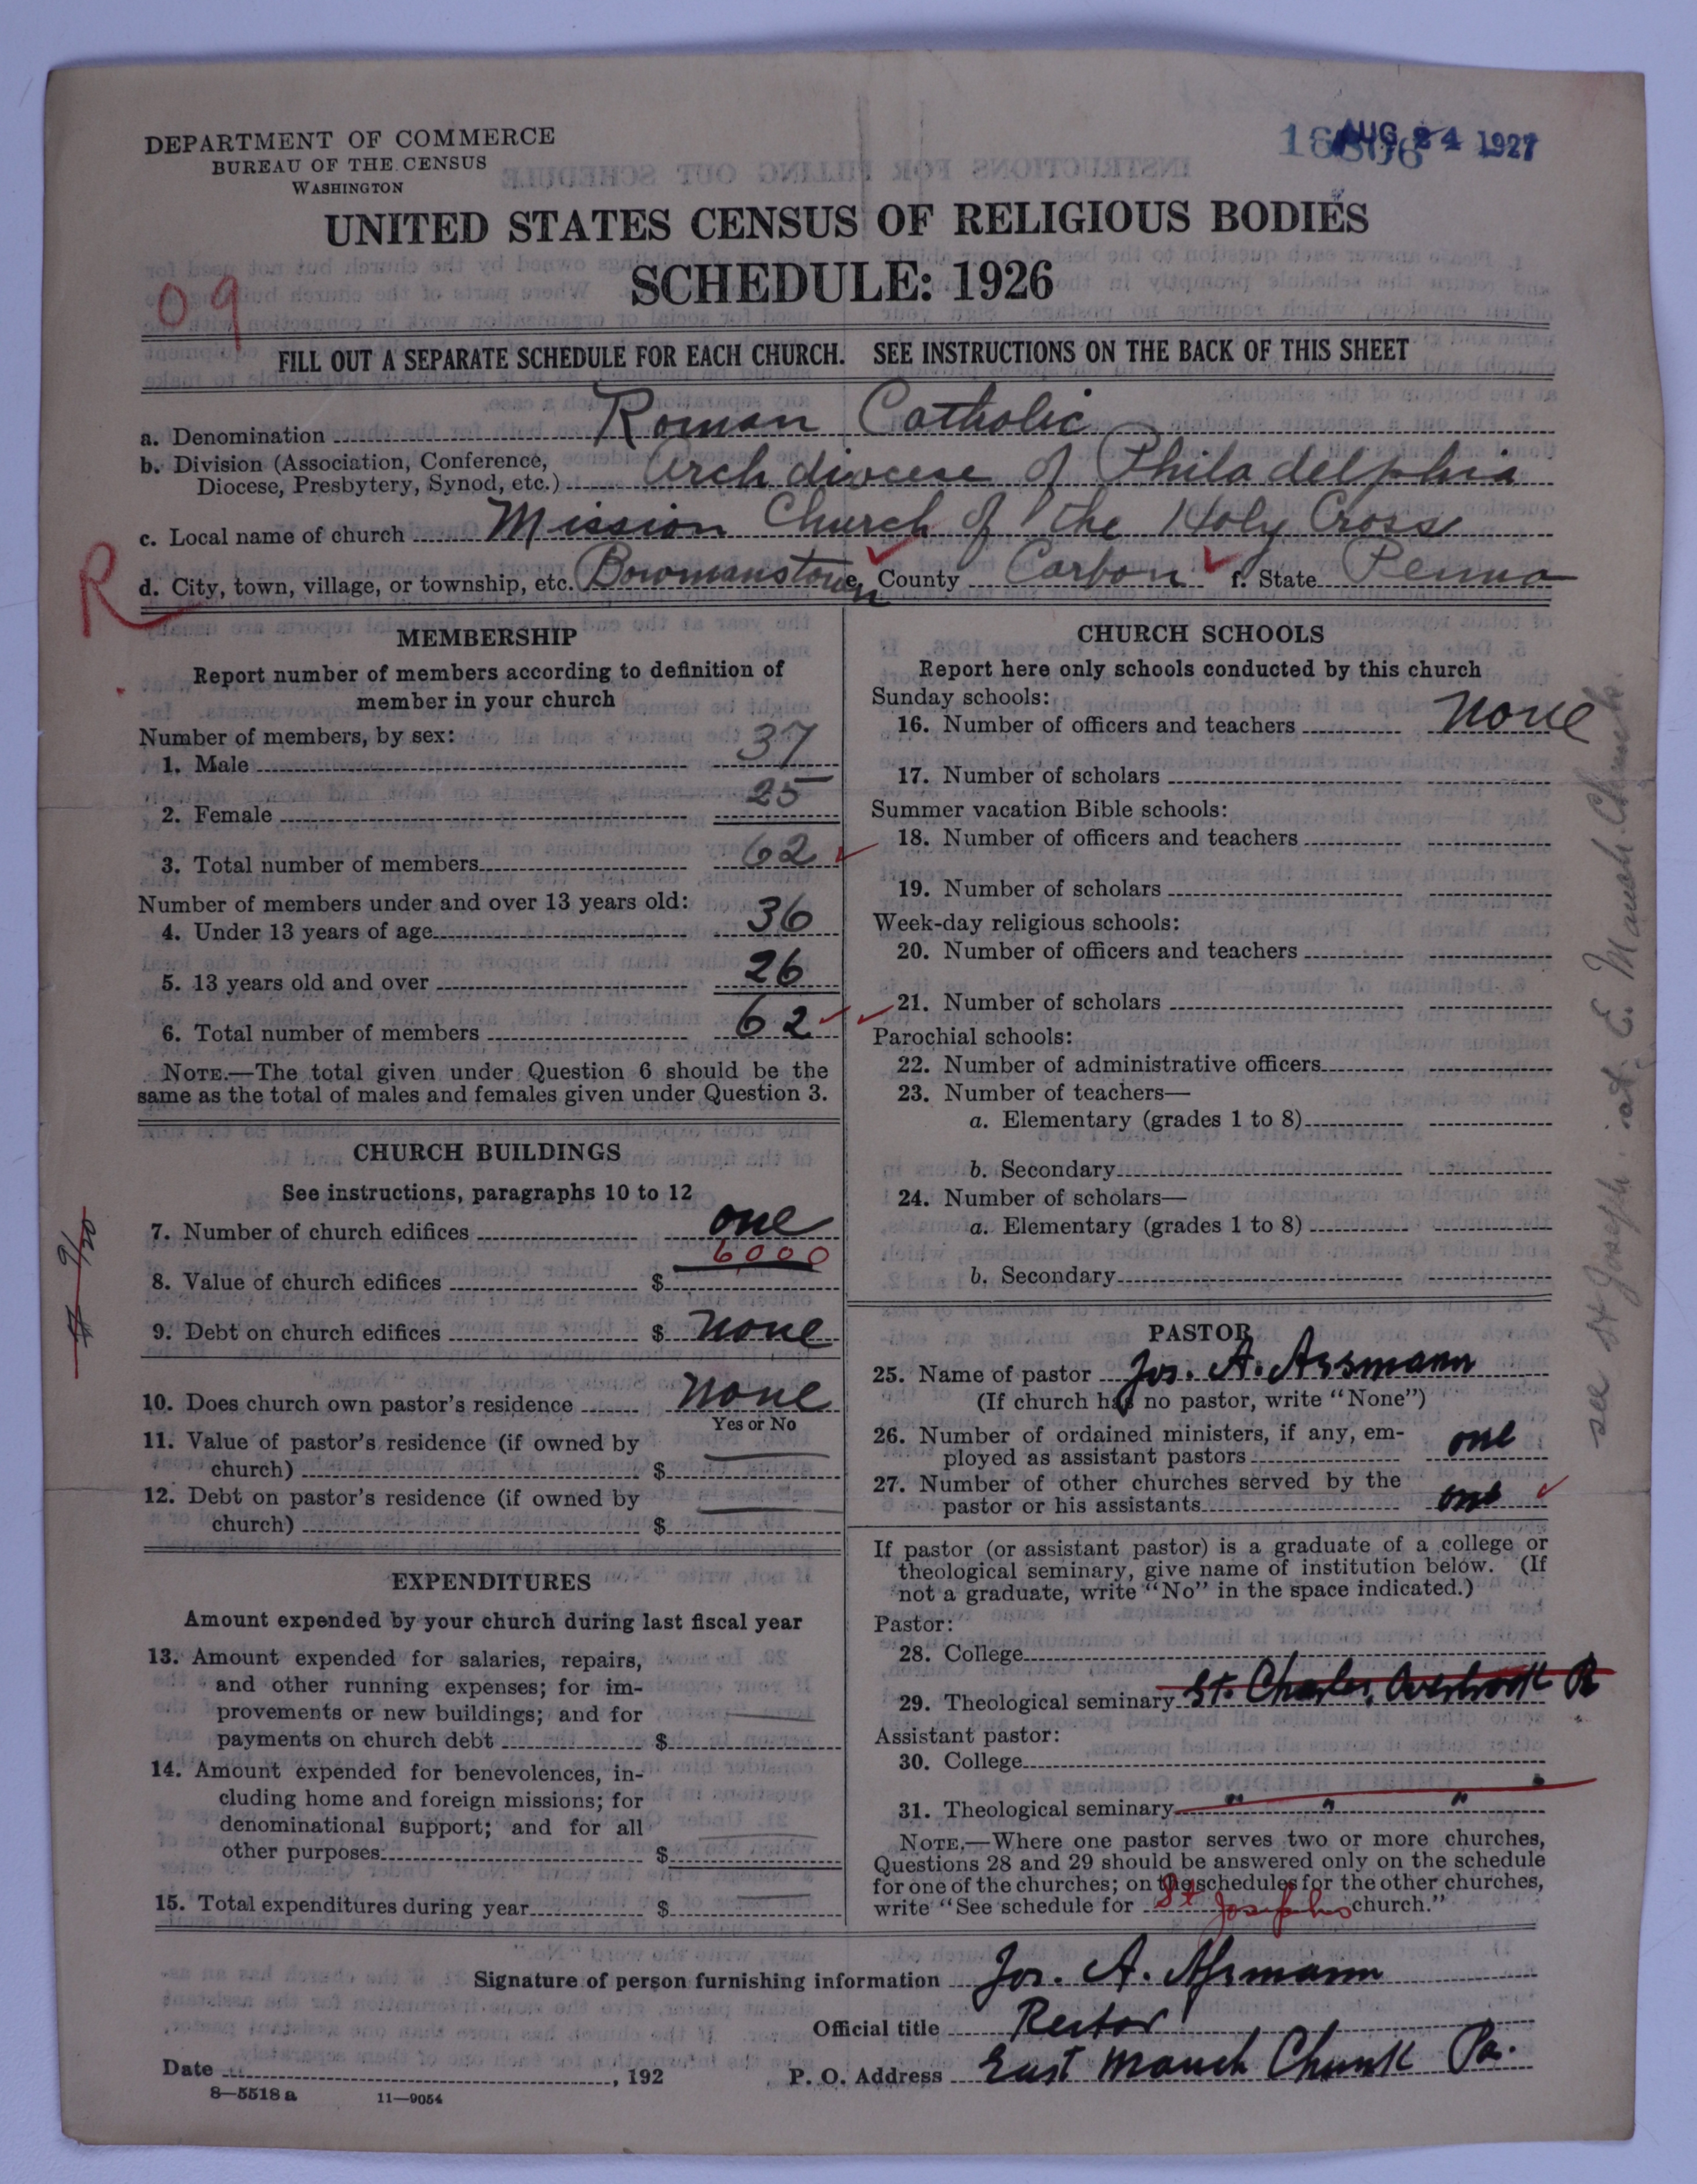 DEPARTMENT OF COMMERCE
BUREAU OF THE CENSUS
WASHINGTON
AUG 24 1927
UNITED STATES CENSUS OF RELIGIOUS BODIES
SCHEDULE: 1926
09
FILL OUT A SEPARATE SCHEDULE FOR EACH CHURCH. SEE INSTRUCTIONS ON THE BACK OF THIS SHEET
a. Denomination Roman Catholic
b. Division (Association, Conference,
Diocese, Presbytery, Synod, etc.) Archdiocese of Philadelphia
c. Local name of church Mission Church of the Holy Cross
R
d. City, town, village, or township, etc. Bowmanstown e. County Carbon f. State Penna
MEMBERSHIP
Report number of members according to definition of
member in your church
Number of members, by sex:
1. Male 37
2. Female 25
3. Total number of members 62
Number of members under and over 13 years old:
4. Under 13 years of age 36
5. 13 years old and over 26
6. Total number of members 62
NOTE.—The total given under Question 6 should be the
same as the total of males and females given under Question 3.
CHURCH BUILDINGS
See instructions, paragraphs 10 to 12
7. Number of church edifices one
6000
8. Value of church edifices $
9. Debt on church edifices $ none
10. Does church own pastor's residence none
Yes or No
11. Value of pastor's residence (if owned by
church) $
12. Debt on pastor's residence (if owned by
church) $
EXPENDITURES
Amount expended by your church during last fiscal year
13. Amount expended for salaries, repairs,
and other running expenses; for im-
provements or new buildings; and for
payments on church debt $
14. Amount expended for benevolences, in-
cluding home and foreign missions; for
denominational support; and for all
other purposes $
15. Total expenditures during year $
CHURCH SCHOOLS
Report here only schools conducted by this church
Sunday schools:
16. Number of officers and teachers none
17. Number of scholars
Summer vacation Bible schools:
18. Number of officers and teachers
19. Number of scholars
Week-day religious schools:
20. Number of officers and teachers
21. Number of scholars
Parochial schools:
22. Number of administrative officers
23. Number of teachers—
a. Elementary (grades 1 to 8)
b. Secondary
24. Number of scholars—
a. Elementary (grades 1 to 8)
b. Secondary
PASTOR
25. Name of pastor Jos. A. Assmann
(If church has no pastor, write "None")
26. Number of ordained ministers, if any, em-
ployed as assistant pastors one
27. Number of other churches served by the
pastor or his assistants one
If pastor (or assistant pastor) is a graduate of a college or
theological seminary, give name of institution below. (If
not a graduate, write "No" in the space indicated.)
Pastor:
28. College
29. Theological seminary St. Charles, Overbrook Pa
Assistant pastor:
30. College
31. Theological seminary " " "
NOTE.—Where one pastor serves two or more churches,
Questions 28 and 29 should be answered only on the schedule
for one of the churches; on the schedules for the other churches,
write "See schedule for St Josephs church."
see St Joseph at E. Mauch Chunk
Signature of person furnishing information Jos. A. Assmann
Official title Rector
Date , 192
P. O. Address East Mauch Chunk Pa.
8—5518 a 11—9054